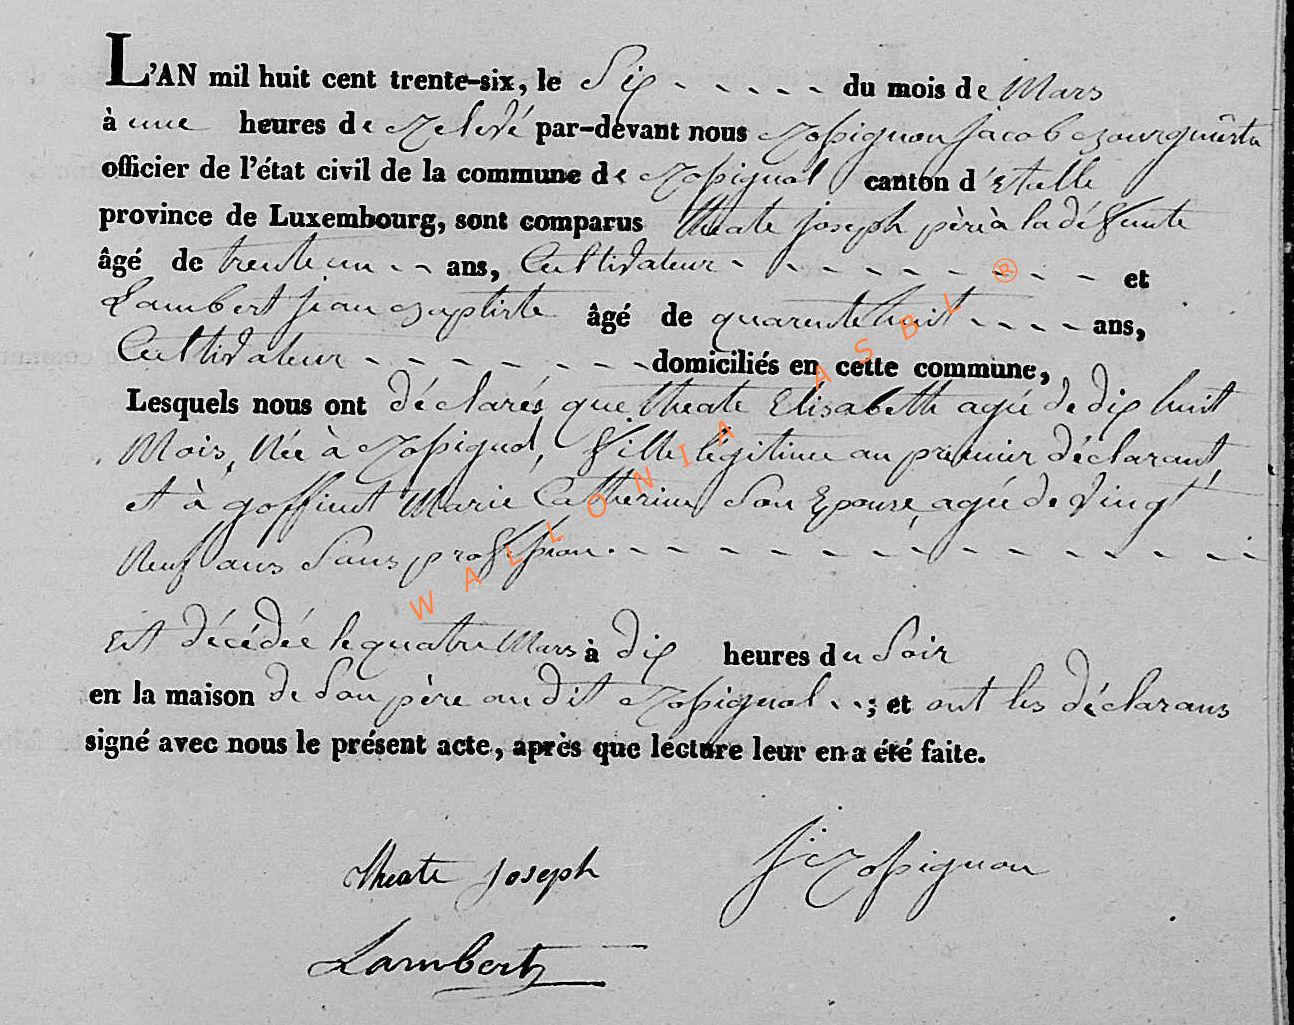 L'AN mil huit cent trente-six, le Six - - - - - du mois de Mars
à une heures de relevé par-devant nous Rossignon Jacob Bourgmestre
officier de l'état civil de la commune de Rossignol canton d'Etalle
province de Luxembourg, sont comparus theate joseph père à la défunte
âgé de trente un - - ans, Cultivateur - - - - - - - - - - et
Lambert jean baptiste âgé de quarente huit - - - - ans,
Cultivateur - - - - - - - - domiciliés en cette commune,
Lesquels nous ont déclarés que theate Elisabeth agée de dix huit
Mois, Née à Rossignol, fille légitime au premier déclarant,
et à goffinet Marie Catherine Son Epouse, agée de vingt
Neuf ans Sans profession. - - - - - - - - - - - - - -
Est décédée le quatre Mars à dix heures du Soir
en la maison de Son père audit Rossignol - -; et ont les déclarans
signé avec nous le présent acte, après que lecture leur en a été faite.
theate joseph
J: Rossignon
Lambert
WALLONIA ASBL ®